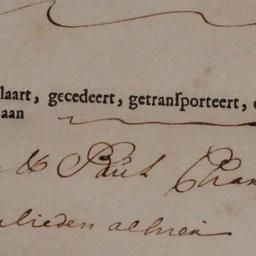 laart, gecedeert, getransporteert,
aan
& Paul Chan
lieden alhier